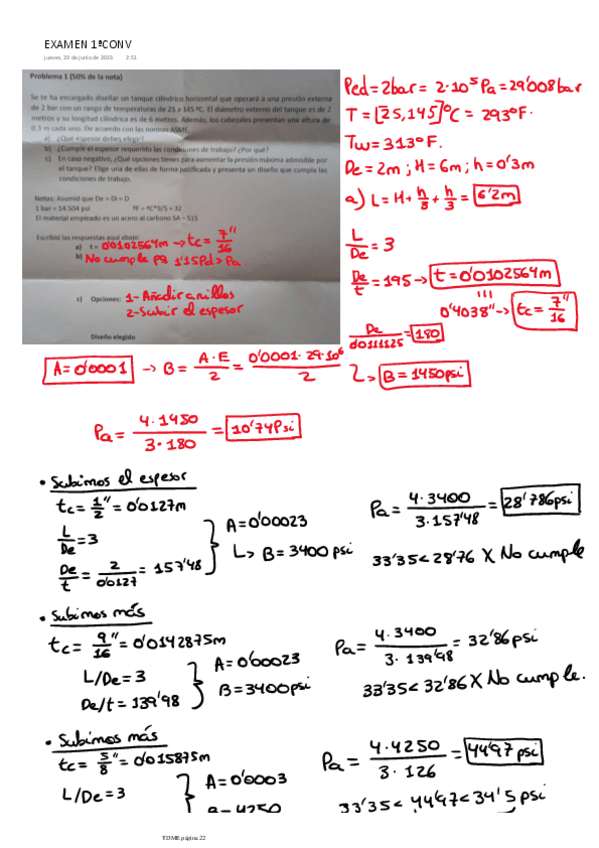 EXAMEN 1ªCONV
jueves, 20 de junio de 2023 2:51
Problema 1 (50% de la nota)
Se te ha encargado diseñar un tanque cilíndrico horizontal que operará a una presión externa
de 2 bar con un rango de temperaturas de 25 a 145 ºC. El diámetro externo del tanque es de 2
metros y su longitud cilíndrica es de 6 metros. Además, los cabezales presentan una altura de
0.3 m cada uno. De acuerdo con las normas ASME,
a) ¿Qué espesor debes elegir?
b) ¿Cumple el espesor requerido las condiciones de trabajo? ¿Por qué?
c) En caso negativo, ¿Qué opciones tienes para aumentar la presión máxima admisible por
el tanque? Elige una de ellas de forma justificada y presenta un diseño que cumpla las
condiciones de trabajo.
Notas: Asumid que De = Di = D
1 bar = 14.504 psi ºF = ºC*9/5 + 32
El material empleado es un acero al carbono SA – 515
Escribid las respuestas aquí abajo:
a) t = 0'0102564m → tc = 7"/16
b) No cumple pq 1'15Pd > Pa.
c) Opciones: 1- Añadir anillos
2- Subir el espesor
Diseño elegido
Ped = 2bar = 2·10⁵Pa = 29'008bar
T = [25,145]ºC = 293ºF.
Tw = 313ºF.
De = 2m ; H = 6m ; h = 0'3m
a) L = H + h/3 + h/3 = 6'2m
L/De = 3
De/t = 195 → t = 0'0102564m
0'4038" → tc = 7"/16
De/0'0111125 = 180
A = 0'0001 → B = A·E/2 = 0'0001·29·10⁶/2 ↳ B = 1450psi
Pa = 4·1450/3·180 = 10'74Psi
• Subimos el espesor
tc = 1"/2 = 0'0127m
L/De = 3
De/t = 2/0'0127 = 157'48
A = 0'00023
↳ B = 3400 psi
Pa = 4·3400/3·157'48 = 28'786psi
33'35 < 28'76 X No cumple
• Subimos más
tc = 9"/16 = 0'0142875m
L/De = 3
De/t = 139'98
A = 0'00023
B = 3400psi
Pa = 4·3400/3·139'98 = 32'86psi
33'35 < 32'86 X No cumple.
• Subimos más
tc = 5"/8 = 0'015875m
L/De = 3
A = 0'0003
B = 4250
Pa = 4·4250/3·126 = 44'97psi
33'35 < 44'97 < 34'5 psi
TDME página 22